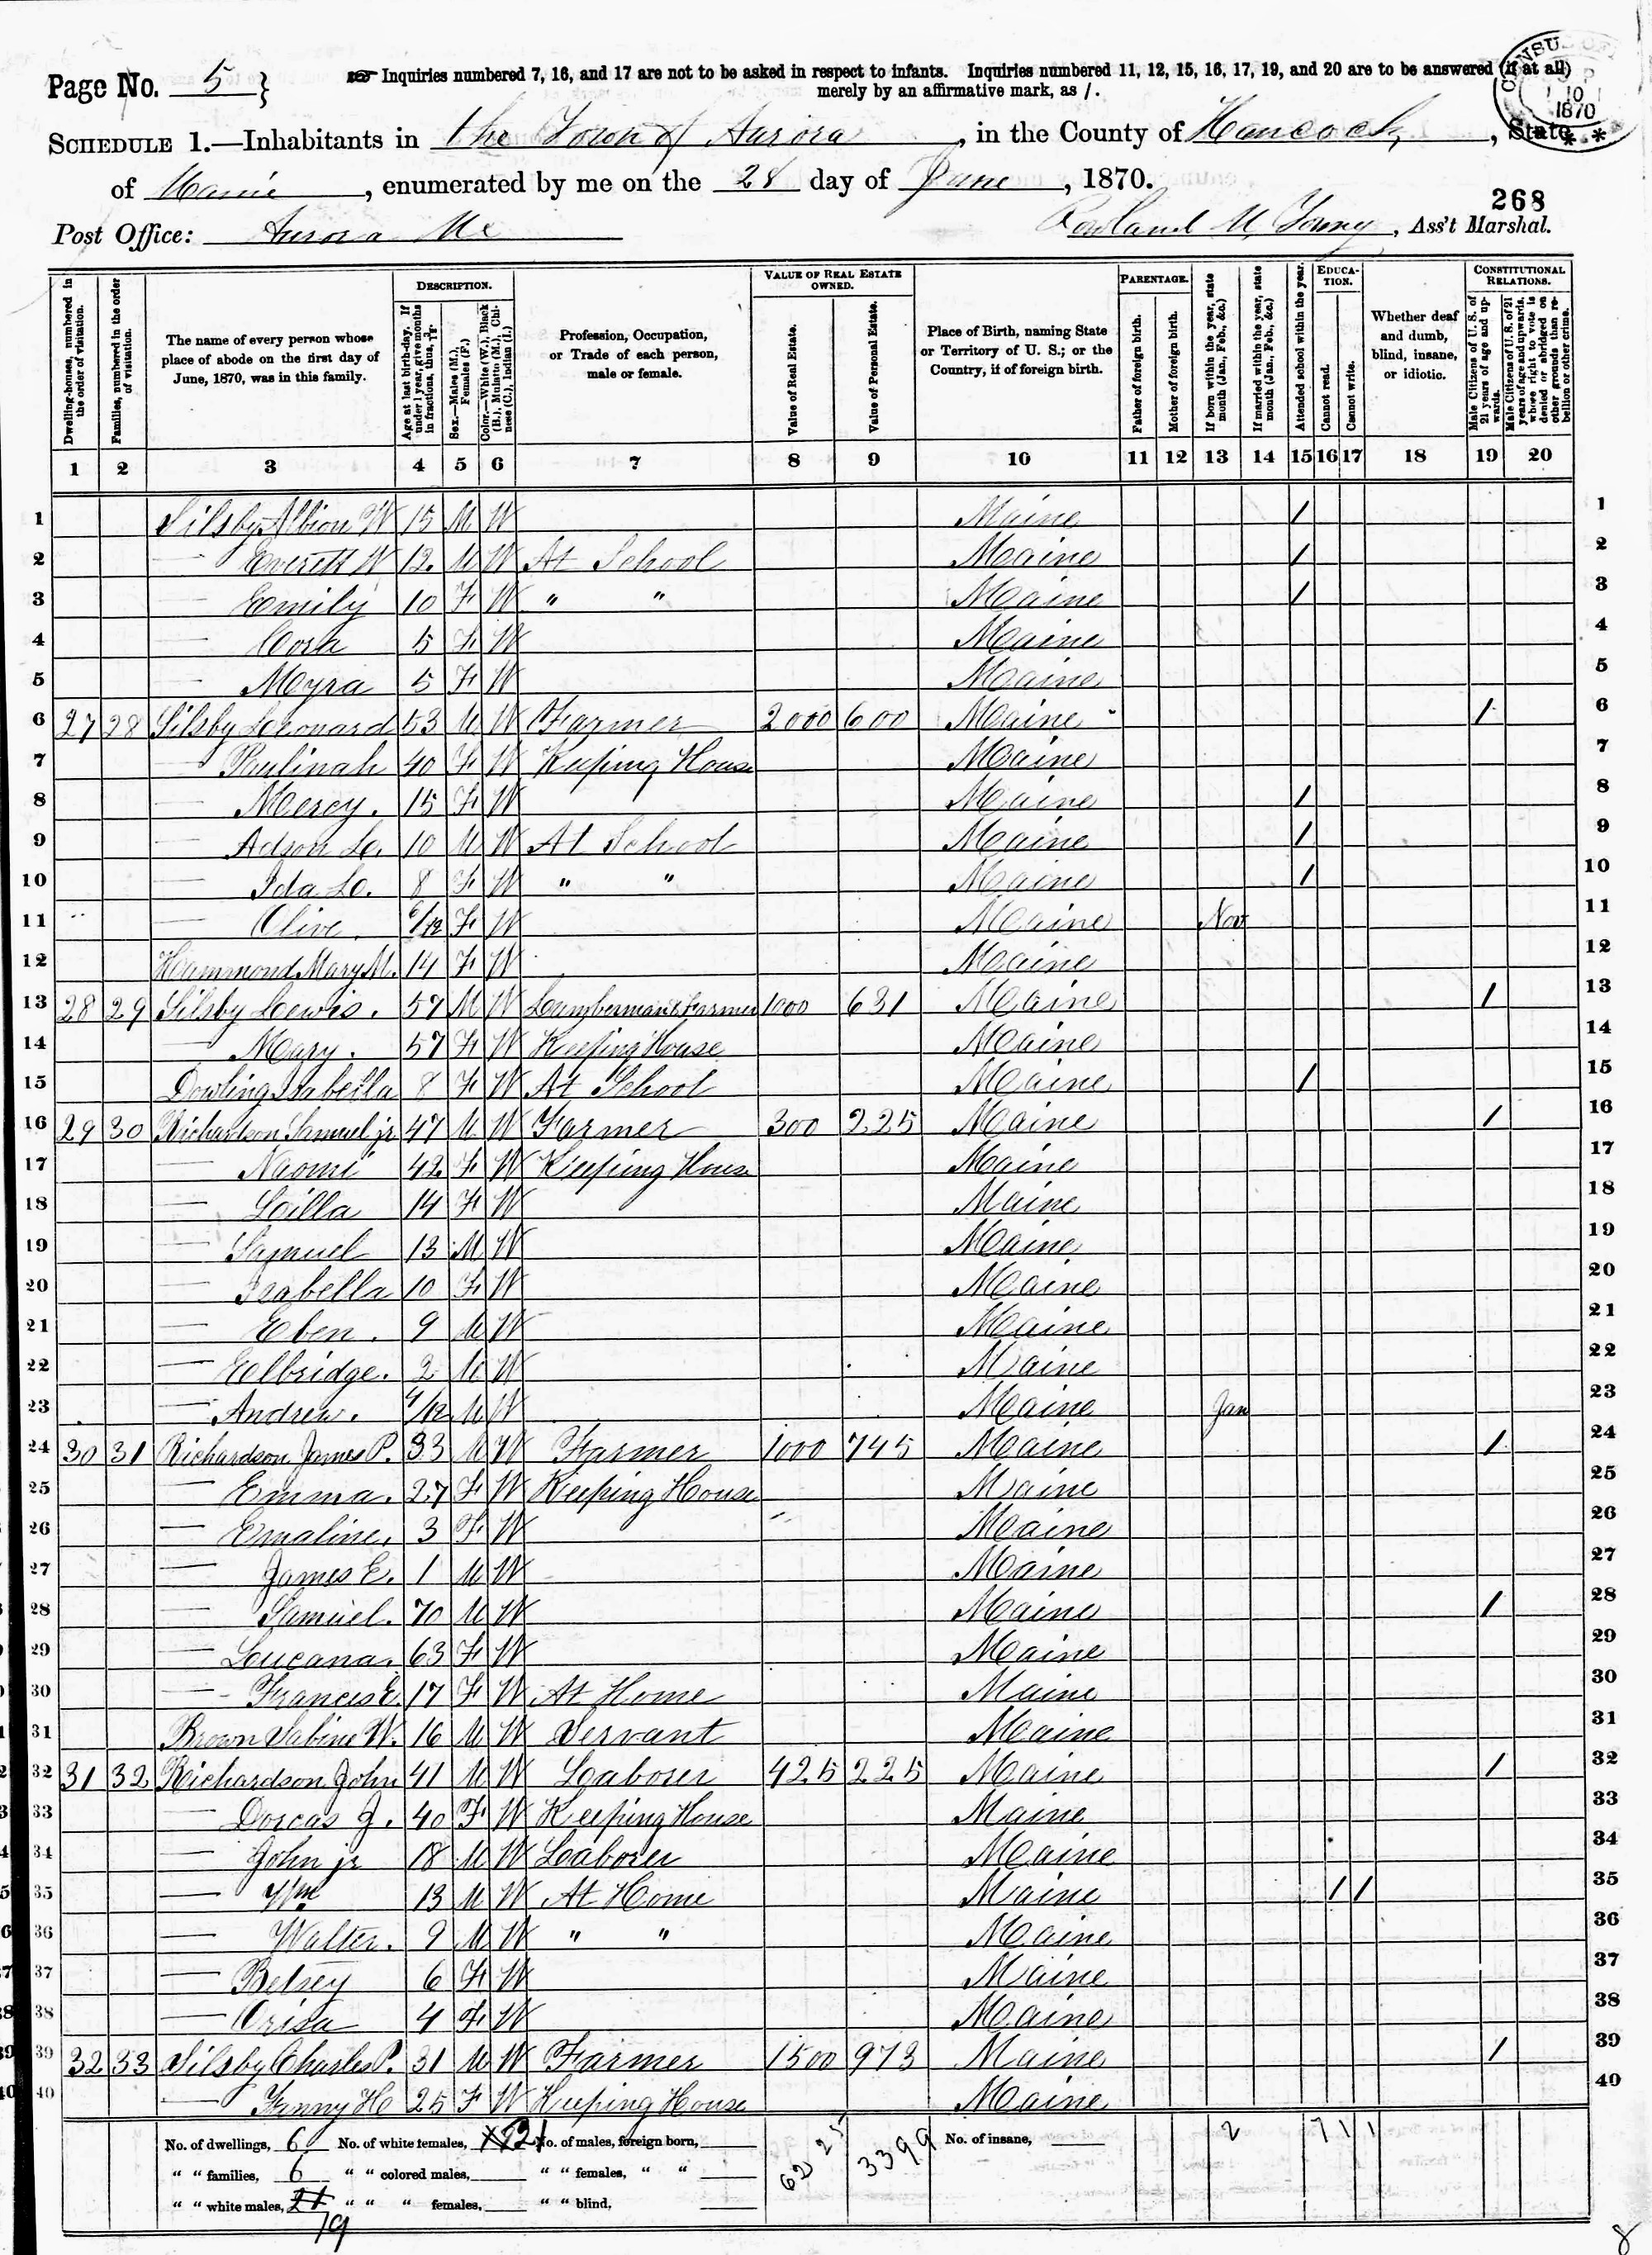 Page No. 5 } Inquiries numbered 7, 16, and 17 are not to be asked in respect to infants. Inquiries numbered 11, 12, 15, 16, 17, 19, and 20 are to be answered (if at all)
merely by an affirmative mark, as /.
SCHEDULE 1.—Inhabitants in the Town of Aurora, in the County of Hancock, State
of Maine, enumerated by me on the 28 day of June, 1870.
268
Post Office: Aurora Me Rowland M. Young, Ass't Marshal.
1870
Dwelling-houses, numbered in the order of visitation.
Families, numbered in the order of visitation.
The name of every person whose place of abode on the first day of June, 1870, was in this family.
DESCRIPTION.
Age at last birth-day. If under 1 year, give months in fractions, thus,
Sex.—Males (M.), Females (F.)
Color.—White (W.), Black (B.), Mulatto (M.), Chinese (C.), Indian (I.)
Profession, Occupation, or Trade of each person, male or female.
VALUE OF REAL ESTATE OWNED.
Value of Real Estate.
Value of Personal Estate.
Place of Birth, naming State or Territory of U. S.; or the Country, if of foreign birth.
PARENTAGE.
Father of foreign birth.
Mother of foreign birth.
If born within the year, state month (Jan., Feb., &c.)
If married within the year, state month (Jan., Feb., &c.)
EDUCATION.
Attended school within the year.
Cannot read.
Cannot write.
Whether deaf and dumb, blind, insane, or idiotic.
CONSTITUTIONAL RELATIONS.
Male Citizens of U. S. of 21 years of age and upwards.
Male Citizens of U. S. of 21 years of age and upwards, whose right to vote is denied or abridged on other grounds than rebellion or other crime.
1 2 3 4 5 6 7 8 9 10 11 12 13 14 15 16 17 18 19 20
1 Silsby Albion W 15 M W Maine / 1
2 — Everett W 12 M W At School Maine / 2
3 — Emily 10 F W " " Maine / 3
4 — Cora 5 F W Maine 4
5 — Myra 5 F W Maine 5
6 27 28 Silsby Leonard 53 M W Farmer 2000 600 Maine / 6
7 — Paulinah 40 F W Keeping House Maine 7
8 — Mercy. 15 F W Maine / 8
9 — Adson L. 10 M W At School Maine / 9
10 — Ida L. 8 F W " " Maine / 10
11 — Olive 6/12 F W Maine Nov 11
12 Hammond Mary M. 14 F W Maine 12
13 28 29 Silsby Lewis. 57 M W Lumberman & Farmer 1000 631 Maine / 13
14 — Mary. 57 F W Keeping House Maine 14
15 Dowling Isabella 8 F W At School Maine / 15
16 29 30 Richardson Samuel jr 47 M W Farmer 300 225 Maine / 16
17 — Naomi 42 F W Keeping House Maine 17
18 — Loilla 14 F W Maine 18
19 — Samuel 13 M W Maine 19
20 — Isabella 10 F W Maine 20
21 — Eben. 9 M W Maine 21
22 — Elbridge. 2 M W Maine 22
23 — Andrew. 4/12 M W Maine Jan 23
24 30 31 Richardson James P. 33 M W Farmer 1000 745 Maine / 24
25 — Emma. 27 F W Keeping House Maine 25
26 — Emaline. 3 F W Maine 26
27 — James E. 1 M W Maine 27
28 — Samuel. 70 M W Maine / 28
29 — Lucana. 63 F W Maine 29
30 — Frances E. 17 F W At Home Maine 30
31 Brown Sabine W. 16 M W Servant Maine 31
32 31 32 Richardson John 41 M W Laborer 425 225 Maine / 32
33 — Dorcas J. 40 F W Keeping House Maine 33
34 — John jr 18 M W Laborer Maine 34
35 — Wm 13 M W At Home Maine / / 35
36 — Walter. 9 M W " " Maine 36
37 — Betsey 6 F W Maine 37
38 — Orisa 4 F W Maine 38
39 32 33 Silsby Charles P. 31 M W Farmer 1500 973 Maine / 39
40 — Fanny H 25 F W Keeping House Maine 40
No. of dwellings, 6 No. of white females, 21 No. of males, foreign born, 6225 3399 No. of insane, 2 7 1 1
" " families, 6 " " colored males, " " females, " "
" " white males, 19 " " " females, " " blind,
8